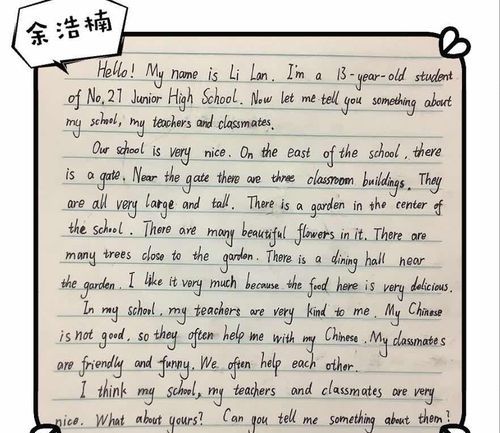 余浩楠
Hello! My name is Li Lan. I'm a 13-year-old student
of No,27 Junior High School. Now let me tell you something about
my school, my teachers and classmates.
Our school is very nice. On the east of the school, there
is a gate. Near the gate there are three classroom buildings. They
are all very large and tall. There is a garden in the center of
the school. There are many beautiful flowers in it. There are
many trees close to the garden. There is a dining hall near
the garden. I like it very much because the food here is very delicious.
In my school, my teachers are very kind to me. My Chinese
is not good, so they often help me with my Chinese. My classmates
are friendly and funny. We often help each other.
I think my school, my teachers and classmates are very
nice. What about yours? Can you tell me something about them?